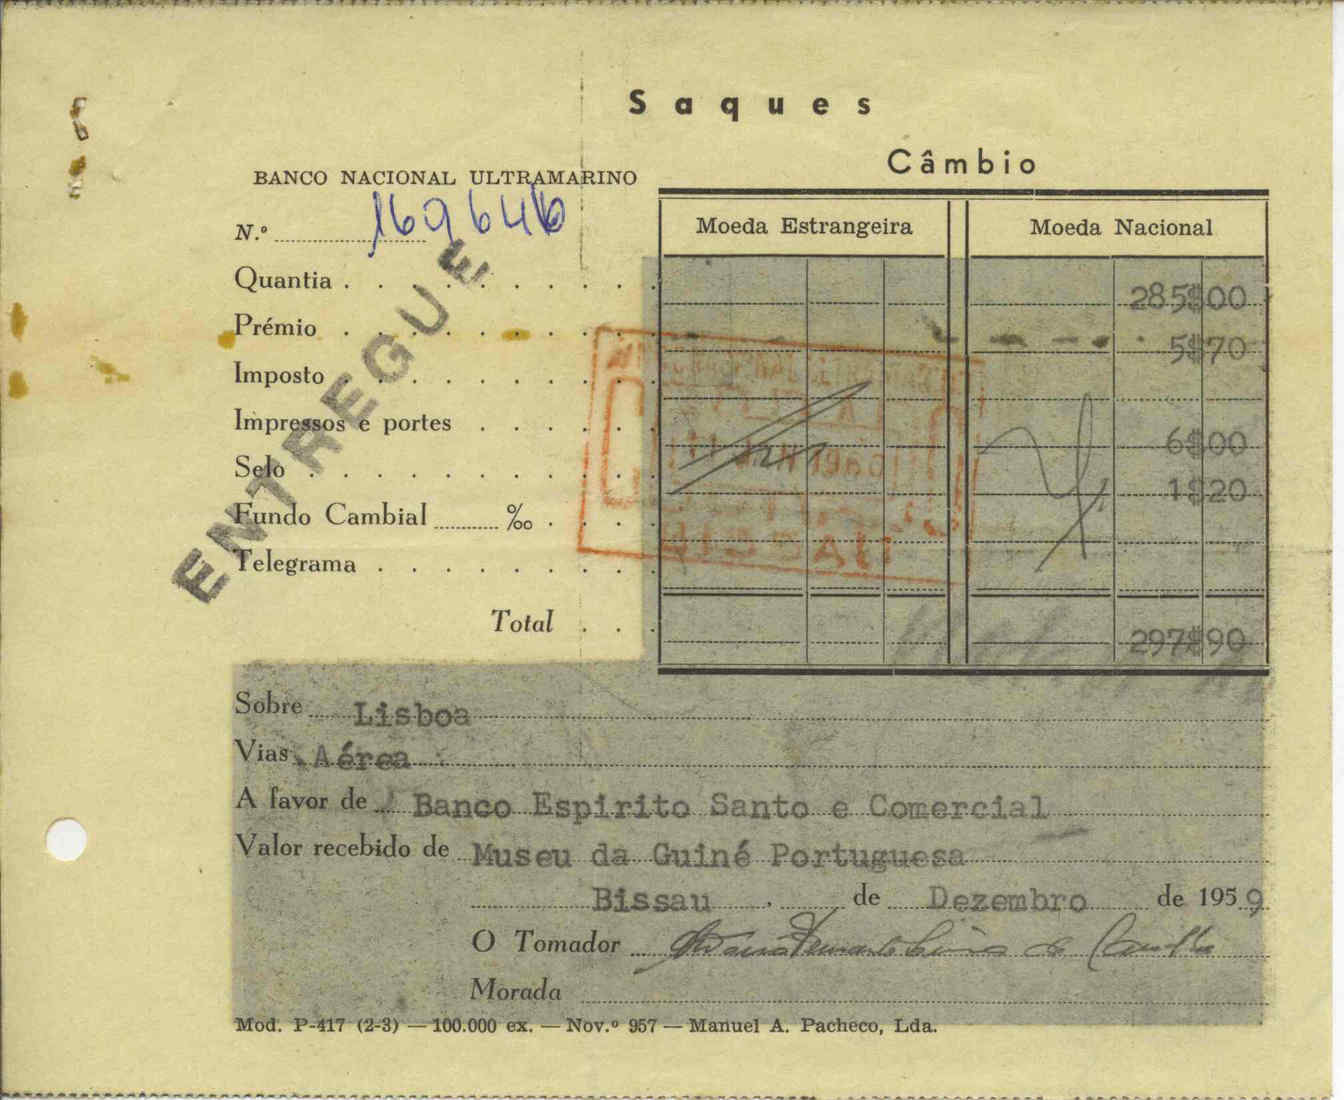 Saques
Câmbio
BANCO NACIONAL ULTRAMARINO
N.º 169646
Moeda Estrangeira Moeda Nacional
Quantia . . . . . . . 285$00
Prémio . . . . . . . 5$70
Imposto . . . . . . .
Impressos e portes . . . . 6$00
Selo . . . . . . . . 1$20
Fundo Cambial ‰ . . .
Telegrama . . . . . . .
Total . . . 297$90
ENTREGUE
Sobre Lisboa
Vias Aérea
A favor de Banco Espirito Santo e Comercial
Valor recebido de Museu da Guiné Portuguesa
Bissau, de Dezembro de 1959
O Tomador
Morada
Mod. P-417 (2-3) — 100.000 ex. — Nov.º 957 — Manuel A. Pacheco, Lda.